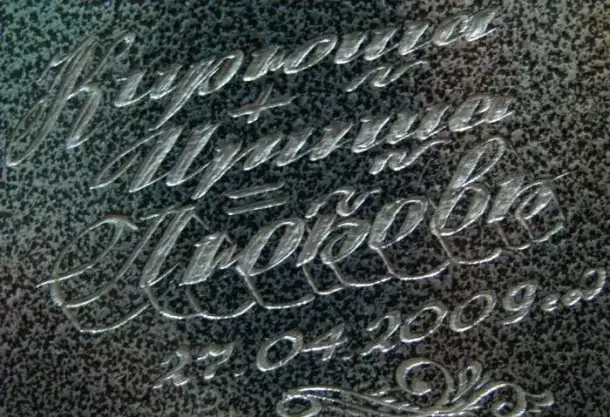 Кирюша
+
Ириша
=
Любовь
27.04.2009...